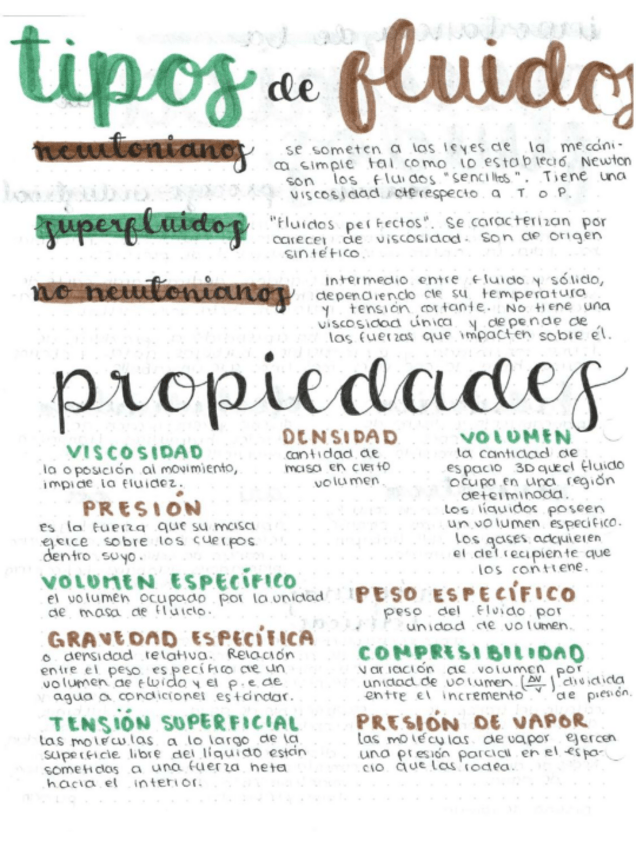 tipos de fluidos
newtonianos
se someten a las leyes de la mecáni-
ca simple tal como lo estableció Newton
son los fluidos "sencillos". Tiene una
viscosidad cte respecto a T o P.
superfluidos
"Fluidos perfectos". Se caracterizan por
carecer de viscosidad. Son de origen
sintético.
no newtonianos
Intermedio entre fluido y sólido,
dependiendo de su temperatura
y tensión cortante. No tiene una
viscosidad única y depende de
las fuerzas que impacten sobre él.
propiedades
VISCOSIDAD
la oposición al movimiento,
impide la fluidez.
DENSIDAD
cantidad de
masa en cierto
volumen
VOLUMEN
la cantidad de
espacio 3D que el fluido
ocupa en una región
determinada.
los líquidos poseen
un volumen específico.
los gases adquieren
el del recipiente que
los contiene.
PRESIÓN
es la fuerza que su masa
ejerce sobre los cuerpos
dentro suyo.
VOLUMEN ESPECÍFICO
el volumen ocupado por la unidad
de masa de fluido.
PESO ESPECÍFICO
peso del fluido por
unidad de volumen.
GRAVEDAD ESPECÍFICA
o densidad relativa. Relación
entre el peso específico de un
volumen de fluido y el p.e de
agua a condiciones estándar.
COMPRESIBILIDAD
variación de volumen por
unidad de volumen (ΔV/V) dividida
entre el incremento de presión.
TENSIÓN SUPERFICIAL
las moléculas a lo largo de la
superficie libre del líquido están
sometidas a una fuerza neta
hacia el interior.
PRESIÓN DE VAPOR
las moléculas de vapor ejercen
una presión parcial en el espa-
cio que las rodea.